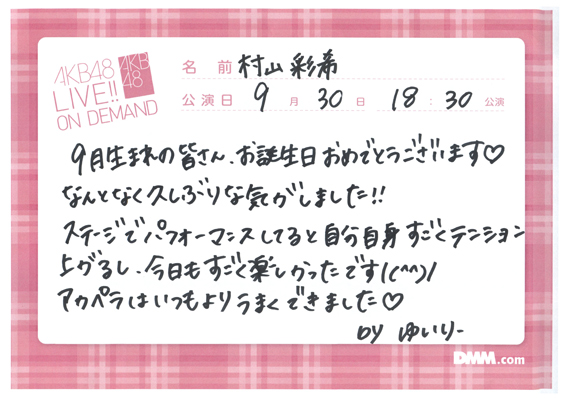 AKB48
LIVE!!
ON DEMAND
AKB
48
名 前 村山 彩希
公演日 9 月 30 日 18 : 30 公演
9月生まれの皆さん、お誕生日おめでとうございます♡
なんとなく久しぶりな気がしました!!
ステージでパフォーマンスしてると自分自身すごくテンション
上がるし、今日もすごく楽しかったです\(^^)/
アカペラはいつもよりうまくできました♡
by ゆいりー
DMM.com